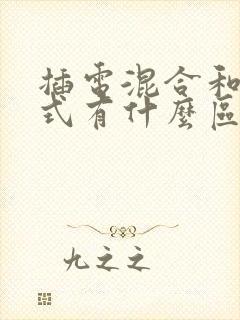 插電混合和
式有什麼區
九之之